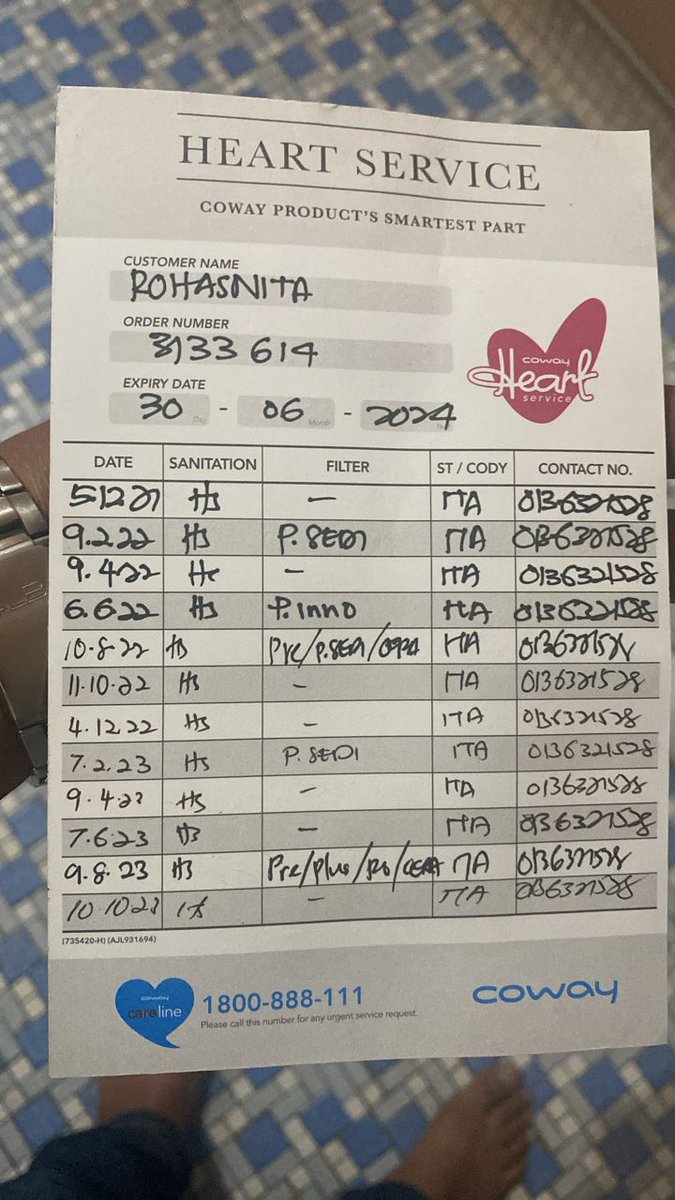 HEART SERVICE
COWAY PRODUCT'S SMARTEST PART
CUSTOMER NAME
ROHASNITA
ORDER NUMBER
3133 614
EXPIRY DATE
30 Day - 06 Month - 2024
coway
Heart
service
DATE SANITATION FILTER ST / CODY CONTACT NO.
5.12.21 HS — ITA 0136321528
9.2.22 HS P. SEDI ITA 0136321528
9.4.22 HS — ITA 0136321528
6.6.22 HS P. INNO ITA 0136321528
10.8.22 HS Pre/P.SEDI/ ITA 0136321528
11.10.22 HS — ITA 0136321528
4.12.22 HS — ITA 0136321528
7.2.23 HS P. SEDI ITA 0136321528
9.4.23 HS — ITA 0136321528
7.6.23 HS — ITA 0136321528
9.8.23 HS Pre/plus/Ro/ ITA 0136321528
10.10.23 HS — ITA 0136321528
(735420-H) (AJL931694)
coway
careline
1800-888-111
Please call this number for any urgent service request.
coway